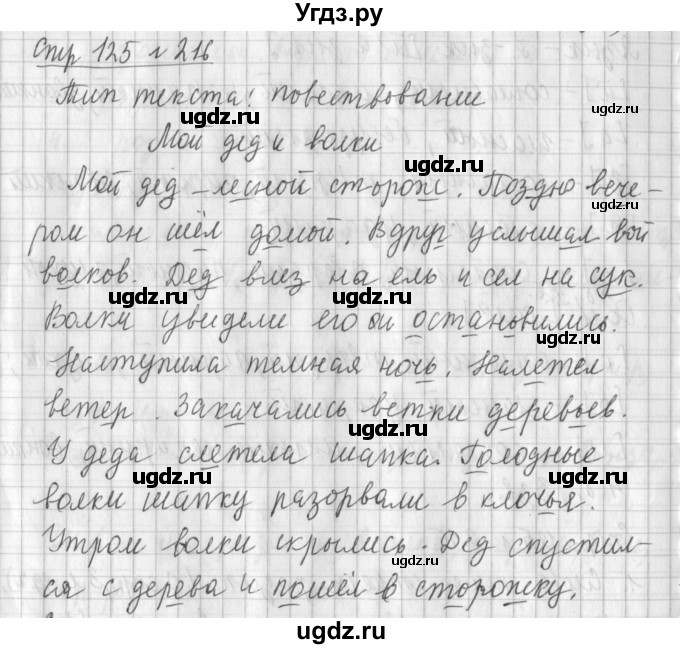 Угдз.ру
Стр 125 № 216
Тип текста: повествование
Мой дед и волки
Мой дед – лесной сторож. Поздно вече-
ром он шёл домой. Вдруг услышал вой
волков. Дед влез на ель и сел на сук.
Волки увидели его и остановились.
Наступила темная ночь. Налетел
ветер. Закачались ветки деревьев.
У деда слетела шапка. Голодные
волки шапку разорвали в клочья.
Утром волки скрылись. Дед спустил-
ся с дерева и пошёл в сторожку.
ugdz.ru
ugdz.ru
ugdz.ru
ugdz.ru
ugdz.ru
ugdz.ru
ugdz.ru
ugdz.ru
ugdz.ru
ugdz.ru
ugdz.ru
ugdz.ru
ugdz.ru
ugdz.ru